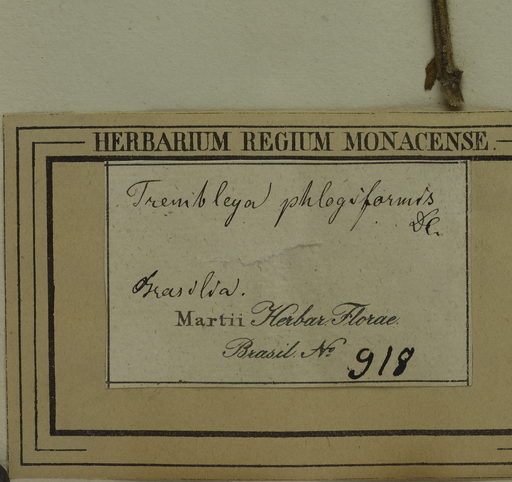 HERBARIUM REGIUM MONACENSE.
Trembleya phlogiformis
DC.
Brasilia.
Martii Herbar. Florae
Brasil. No 918